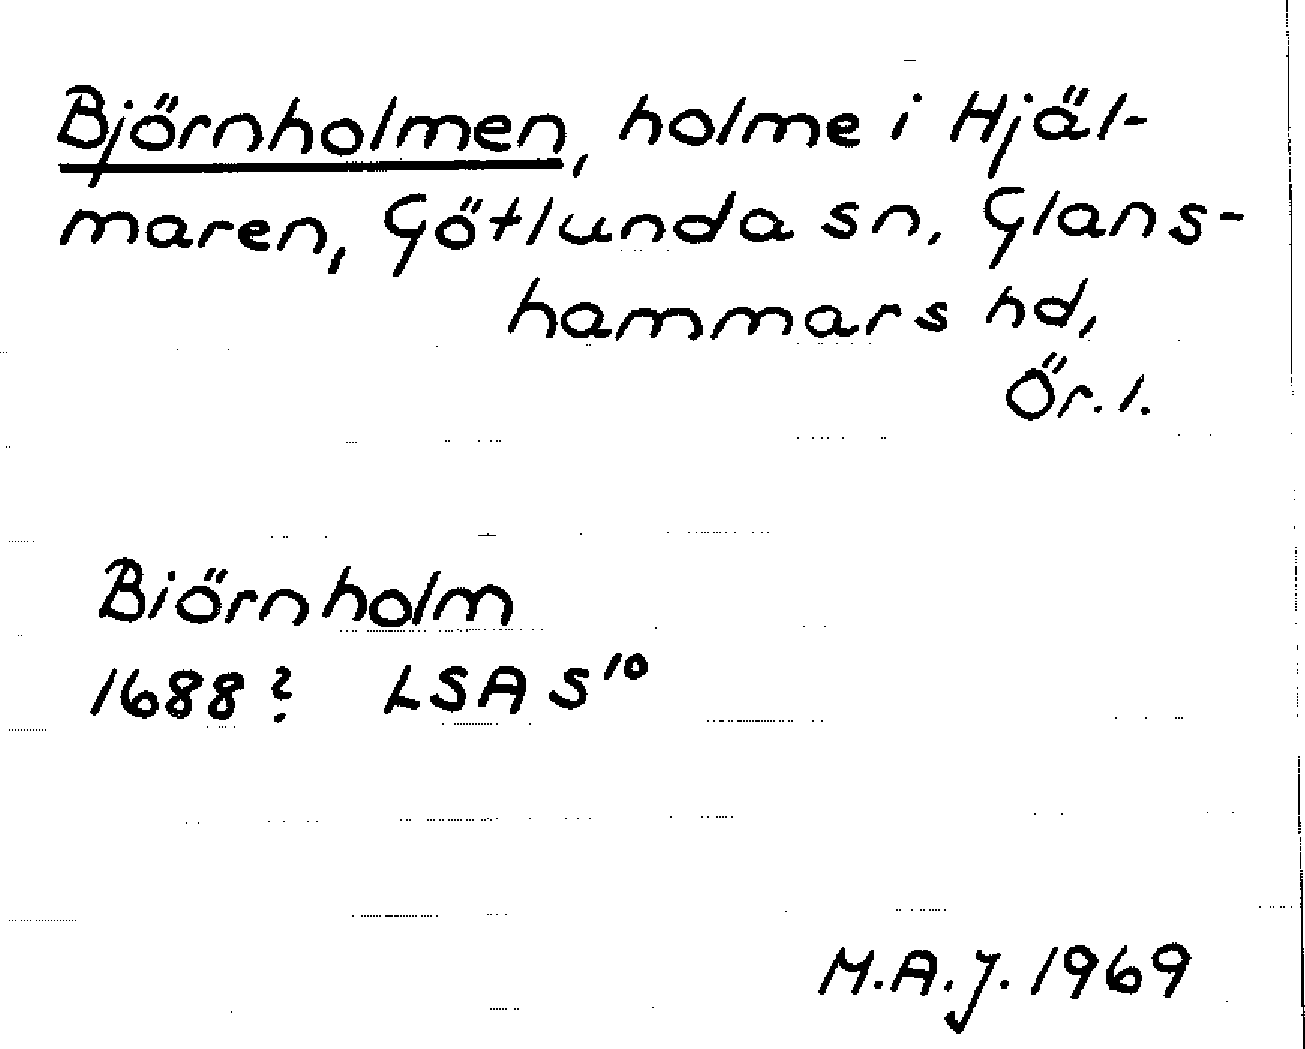 Björnholmen, holme i Hjäl-
maren, Götlunda sn, Glans-
hammars hd,
Ör. l.
Biörnholm
1688? LSA S¹⁰
M.A.J. 1969